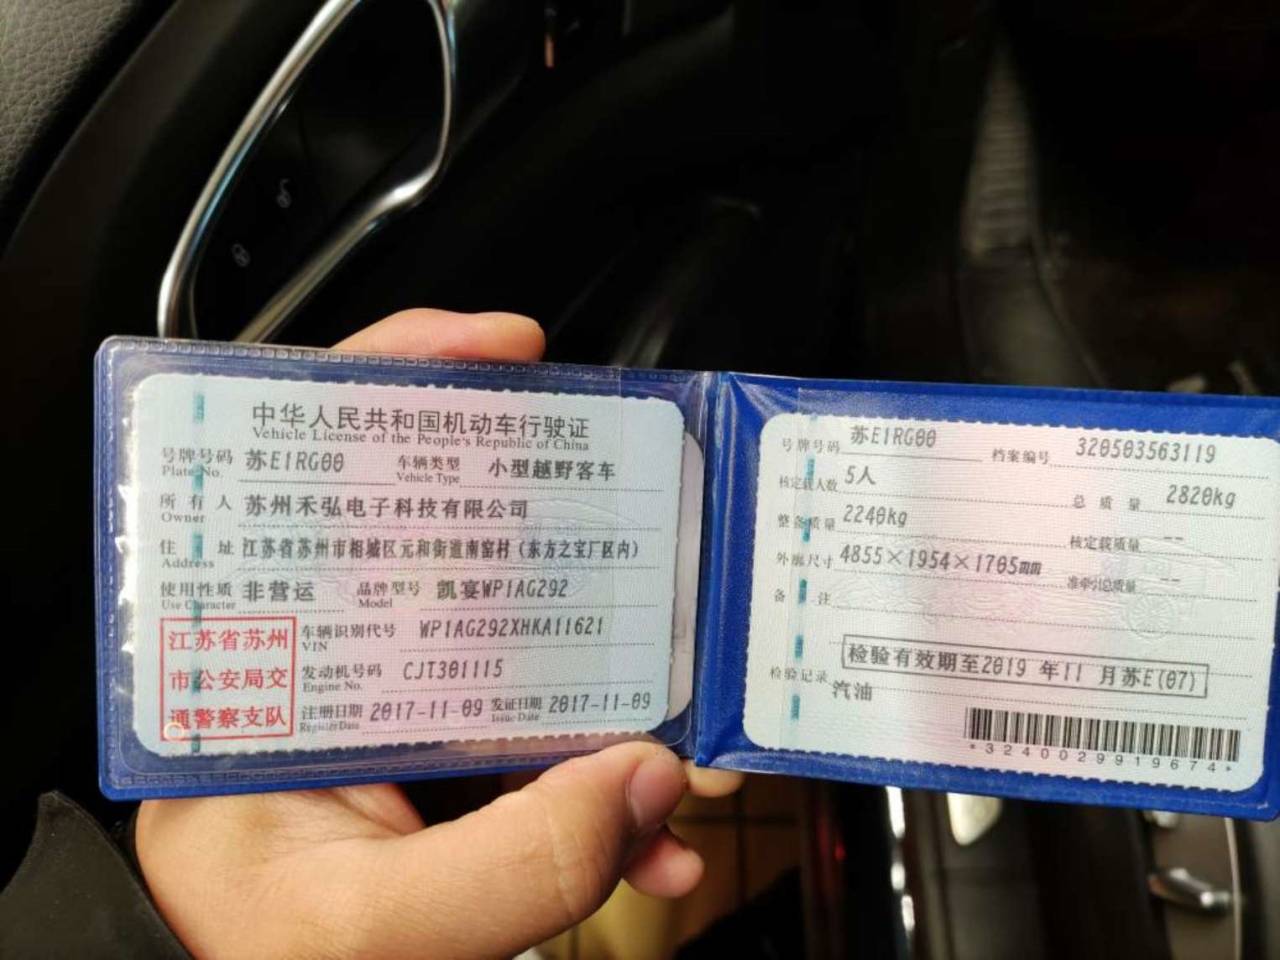 中华人民共和国机动车行驶证
Vehicle License of the People's Republic of China
号牌号码 苏E1RG00 车辆类型 小型越野客车
Plate No. Vehicle Type
所有人 苏州禾弘电子科技有限公司
Owner
住址 江苏省苏州市相城区元和街道南窑村(东方之宝厂区内)
Address
使用性质 非营运 品牌型号 凯宴WP1AG292
Use Character Model
江苏省苏州
市公安局交
通警察支队
车辆识别代号 WP1AG292XHKA11621
VIN
发动机号码 CJT301115
Engine No.
注册日期 2017-11-09 发证日期 2017-11-09
Register Date Issue Date
号牌号码 苏E1RG00 档案编号 320503563119
核定载人数 5人 总质量 2820kg
整备质量 2240kg 核定载质量 --
外廓尺寸 4855×1954×1705mm 准牵引总质量 --
备注
检验有效期至2019年11月苏E(07)
检验记录
汽油
*3240029919674*